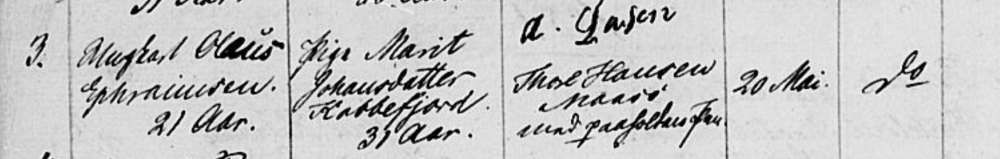 3. Ungkarl Olaus
Ephraimsen.
21 Aar.
Pige Marit
Johansdatter
Kobbefjord.
31 Aar.
A. Larsen
Thore Hansen
Maasö
20 Mai.
do